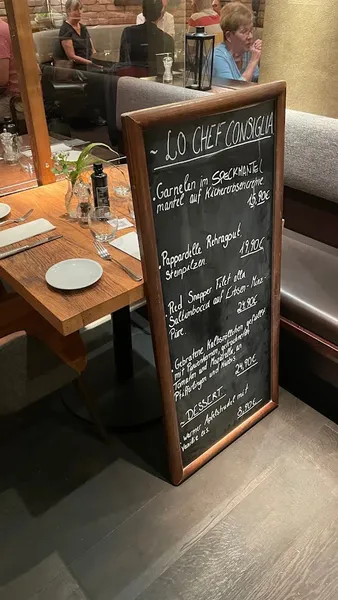 ~ LO CHEF CONSIGLIA
. Garnelen im SPECKMANTEL
mantel auf Kichererbsencreme
18.90€
. Pappardelle Rehragout
Steinpilzen
19,90€
. Red Snapper Filet alla
Saltimbocca auf Erbsen-Minz-
Püree
23.90€
. Gebratene Kalbs
mit
Tomaten und
Pfifferlingen und
24,90€
DESSERT
warmer Apfelstrudel mit
Vanille eis
8,90€